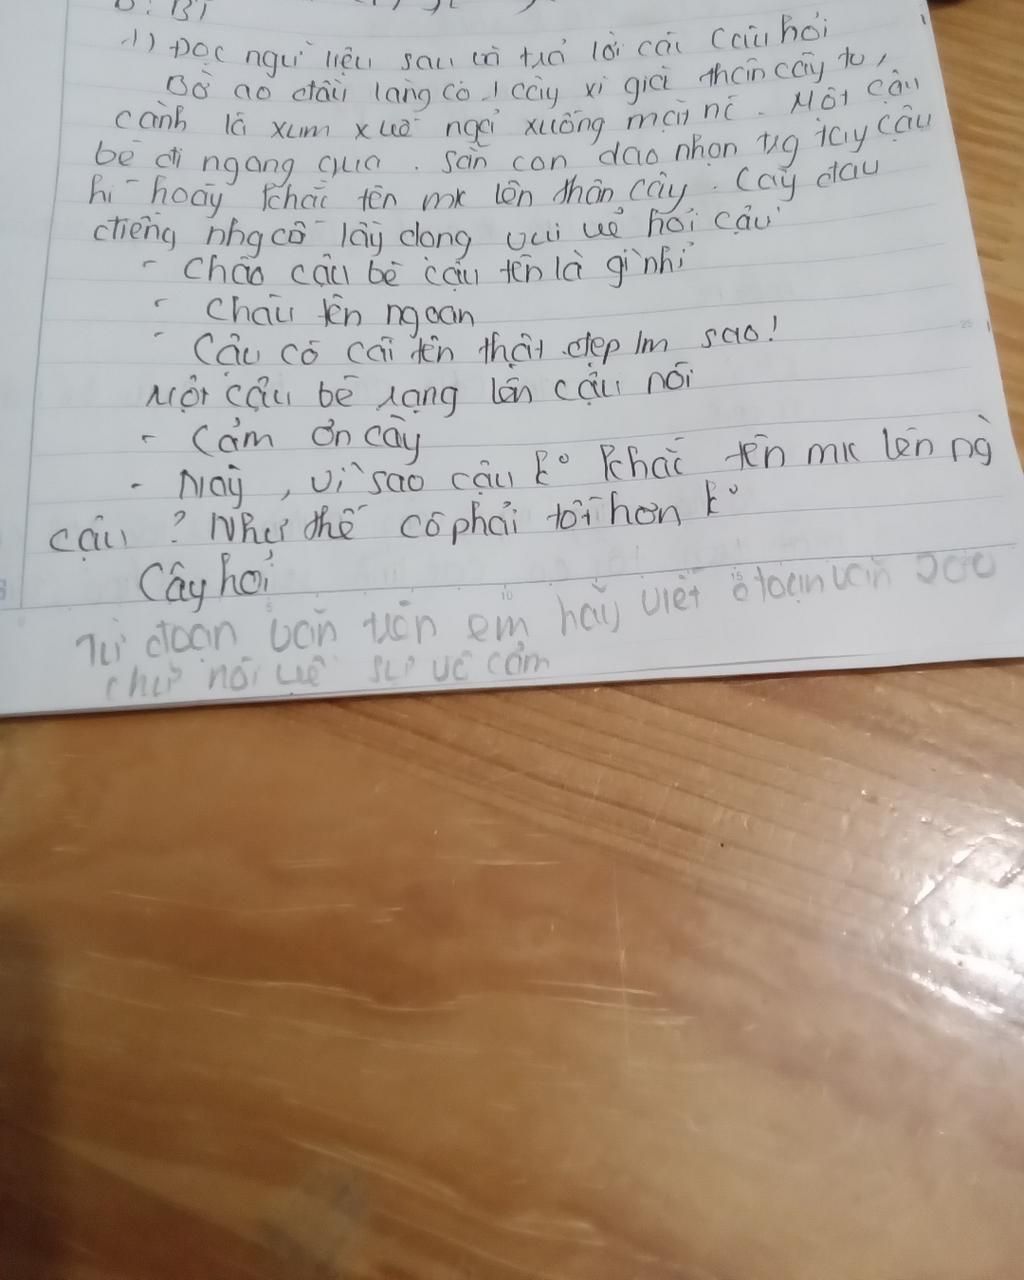 B: BT
1) Đọc ngữ liệu sau và trả lời các câu hỏi
Bờ ao đầu làng có 1 cây xi già thân cây to,
cành lá xum xuê ngả xuống mặt nc. Một cậu
bé đi ngang qua. Sẵn con dao nhọn trg tay cậu
hí hoáy khắc tên mk lên thân cây. Cây đau
điếng nhg cố lấy dọng vui vẻ hỏi cậu
- Chào cậu bé cậu tên là gì nhỉ
- Cháu tên ngoan
- Cậu có cái tên thật đẹp lm sao!
Một cậu bé rạng lên cậu nói
- Cảm ơn cây
- Này, vì sao cậu ko khắc tên mk lên ng
cậu? Như thế có phải tốt hơn ko
Cây hỏi
Từ đoạn văn trên em hãy viết đoạn văn 200
chữ nói về sự vô cảm